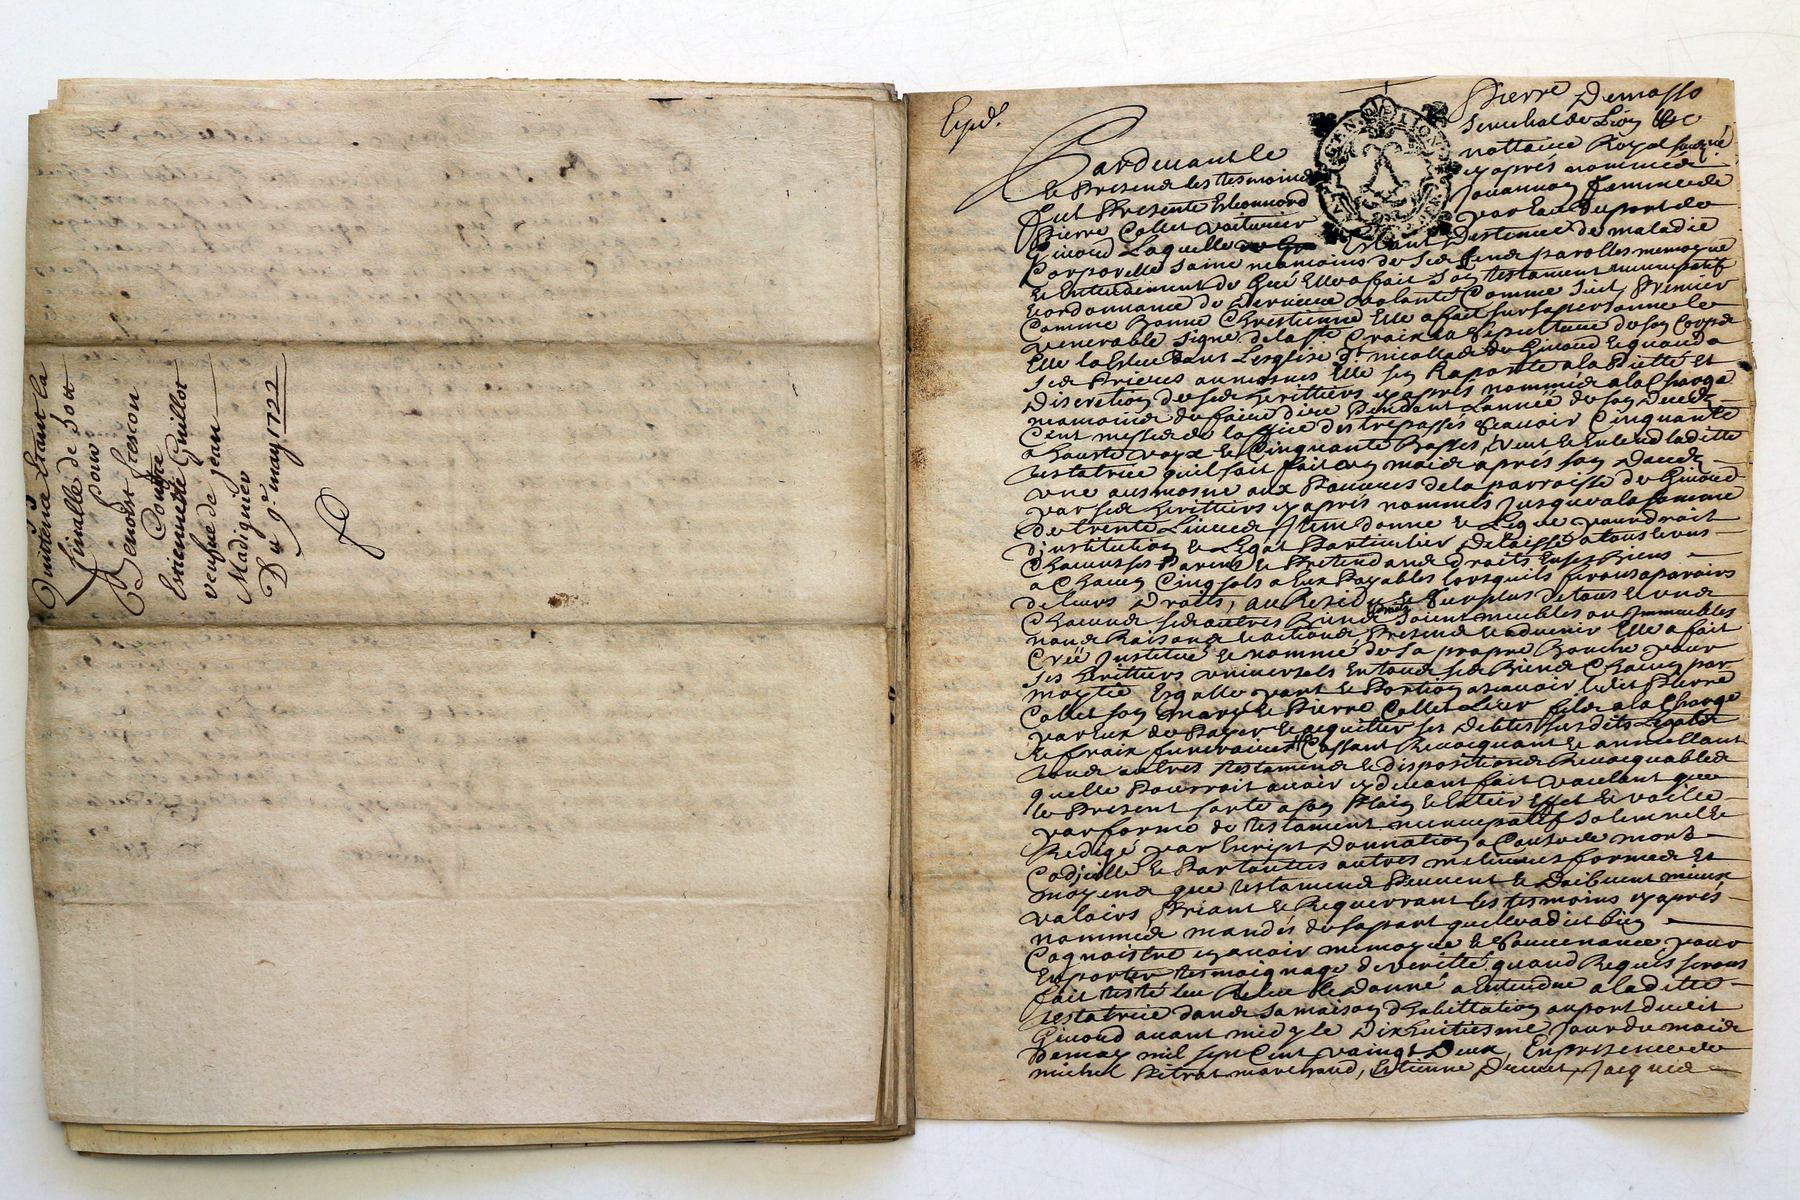 Quittance Estant la
finalle de son
pour
Benoist frescon
Contre
Estiennette Guillot
veufve de Jean
Madiguier
Du 9e may 1722
Exped.
GEN. DE LION
Pierre Demasso
Senechal de Lion &c
Pardevant le nottaire Royal soussigné
Et Presend les tesmoins cyaprés nommés
fut Presente Eleonnord Jouannon femme de
Pierre Collet voitturier par Eau du port de
Givord Laquelle Estant destenue de maladie
Corporelle saine neamoins de ses sens parolles memoyre
Et Entendement de Gré Elle a fait son testament nuncupatif
Et ordonnance de derniere volonté Comme suit, Premier
Comme Bonne Chrestienne Elle a fait sur sa personne le
venerable signe de la ste Croix la sepulture de son Corps
Elle la Eslue dans L'esglise st nicollas de Givord Et quand a
ses Prieres aumosnes Elle sen Raporte a la Pietté Et
Discretion de ses herittiers cyaprés nommés a la Charge
neamoins de faire dire Pendant Lannée de son Deceds
Cent messes de loffice des trepassés scavoir Cinquante
a hauste voix Et Cinquante Basses, veut Et Entend laditte
testatrice quil soit fait un mois aprés son Deceds
une ausmosne aux Pauvres de la parroisse de Givord
par ses herittiers cyaprés nommés Jusqua la somme
De trente Livres, Item donne Et Legue pour droit
d'institution Et Legat Particulier delaissé a tous Et uns
Chacuns ses Parens Et Pretendans droits En ses Biens
a Chacun Cinq sols a Eux Payables lorsquils feront aparoir
de leurs Droits, au Residu Et surplus de tous Et uns
Chacuns ses autres Biens Droits soient meubles ou Immeubles
noms Raisons Et actions Presens Et advenir Elle a fait
Créé Institué Et nommé de sa propre Bouche pour
ses herittiers universels En tous ses Biens Chacun par
moytié Esgalle part Et Portion ascavoir ledit Pierre
Collet son mary Et Pierre Collet Leur fils a la Charge
par Eux de Payer Et acquitter ses Debtes susdits Legats
Et fraix funeraires Cassant Revocquant Et annullant
tous autres testamens Et dispositions Revocquables
quelle Pourroit avoir cydevant fait voulant que
le Present sorte a son Plain Et Entier Effet Et vaille
par forme de testament nuncupatif solemnelle
Redigé par Escript Donnation a Cause de mort
Codicille Et Par touttes autres meilleures formes Et
moyens que testamens Peuvent Et Doibvent mieux
valoir Priant Et Requerrant les tesmoins cyaprés
nommés mandés de sa part quelle a dit bien
Cognoistre cy avoir memoyre Et souvenance pour
En porter tesmoignage de verité quand Requis seront
fait testé leu Releu Et donné a Entendre a laditte
testatrice dans sa maison d'habittation au port dudit
Givord avant midy le Dixhuitiesme Jour du mois
De may mil sept Cent vaingt Deux, En presence de
michel Pitrat marchand, Estienne Jacques